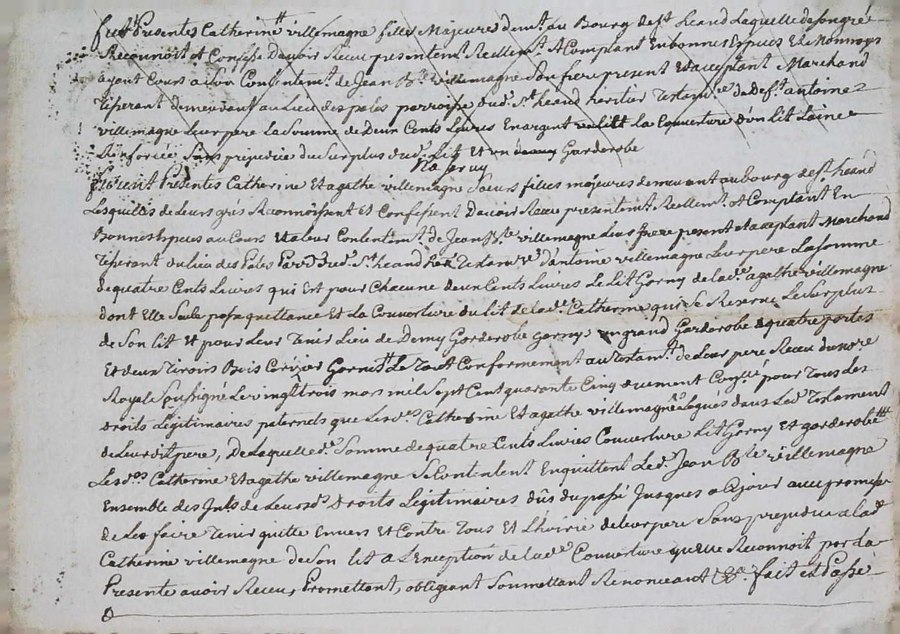 fut Presentes Catherine villemagne filles Majeures demt. au Bourg de st. heand Laquelle de son gré
Reconnoit et Confesse Davoir Receu presentemt. Reellemt. et Comptant En bonnes Especes Et de Monnoye
ayant Cours a Son Contentemt. de Jean Bte villemagne Son frere present et acceptant Marchand
demeurant au Lieu des paroisse dud. st. heand heritier de deft. antoine
villemagne Leur pere La Somme de deux Cents Livres En argent la Couverture d'un lit Laine
Sans prejudice du Surplus dud. Lit Et un Garderobe

furent Presentes Catherine Et agathe villemagne Soeurs filles majeures demeurant au bourg de st. heand
Lesquelles de Leurs grés Reconnoissent Et Confessent Davoir Receu presentemt. Reellemt. et Comptant En
Bonnes Especes au Cours Contentemt. de Jean Bte villemagne Leur frere present et acceptant Marchand
du lieu des dud. st. heand d'antoine villemagne Leur pere La Somme
de quatre Cents Livres qui Est pour Chacune deux Cents Livres Le Lit Gorny de lade. agathe villemagne
dont Elle Seule passe quittance Et La Couverture du lit de lade. Catherine qui Se Reserve Le Surplus
de Son lit Et pour Leur Tenir Lieu de Demy Garderobe Gorny un grand Garderobe a quatre portes
Et deux Tiroirs Bois Cerizier Le Tout Conformement au Testamt. de Leur pere Receu du nore
Royal Soussigné Le vingt trois mars mil Sept Cent quarante Cinq pour Tous Les
droits Légitimaires paternels que Lesdes. Catherine Et agathe villemagne Legués dans Led. Testament
de Leur dit pere, De Laquelle de. Somme de quatre Cents Livres Couverture Lit Gorny Et garderobe
Lesdes. Catherine Et agathe villemagne Se Contentent En quittent Led. Jean Bte villemagne
Ensemble des Jnts. de Leurs ds. Droits Légitimaires dûs du passé Jusques a Ce jour avec promesse
de Les faire Tenir quitte Envers Et Contre Tous Et L'hoirie de leur pere Sans prejudice a lade
Catherine villemagne de Son lit a L'Exception de lade. Couverture quelle Reconnoit par La
Presente avoir Receu, Promettant, obligeant Soumettant Renonceant &a. fait et Passé